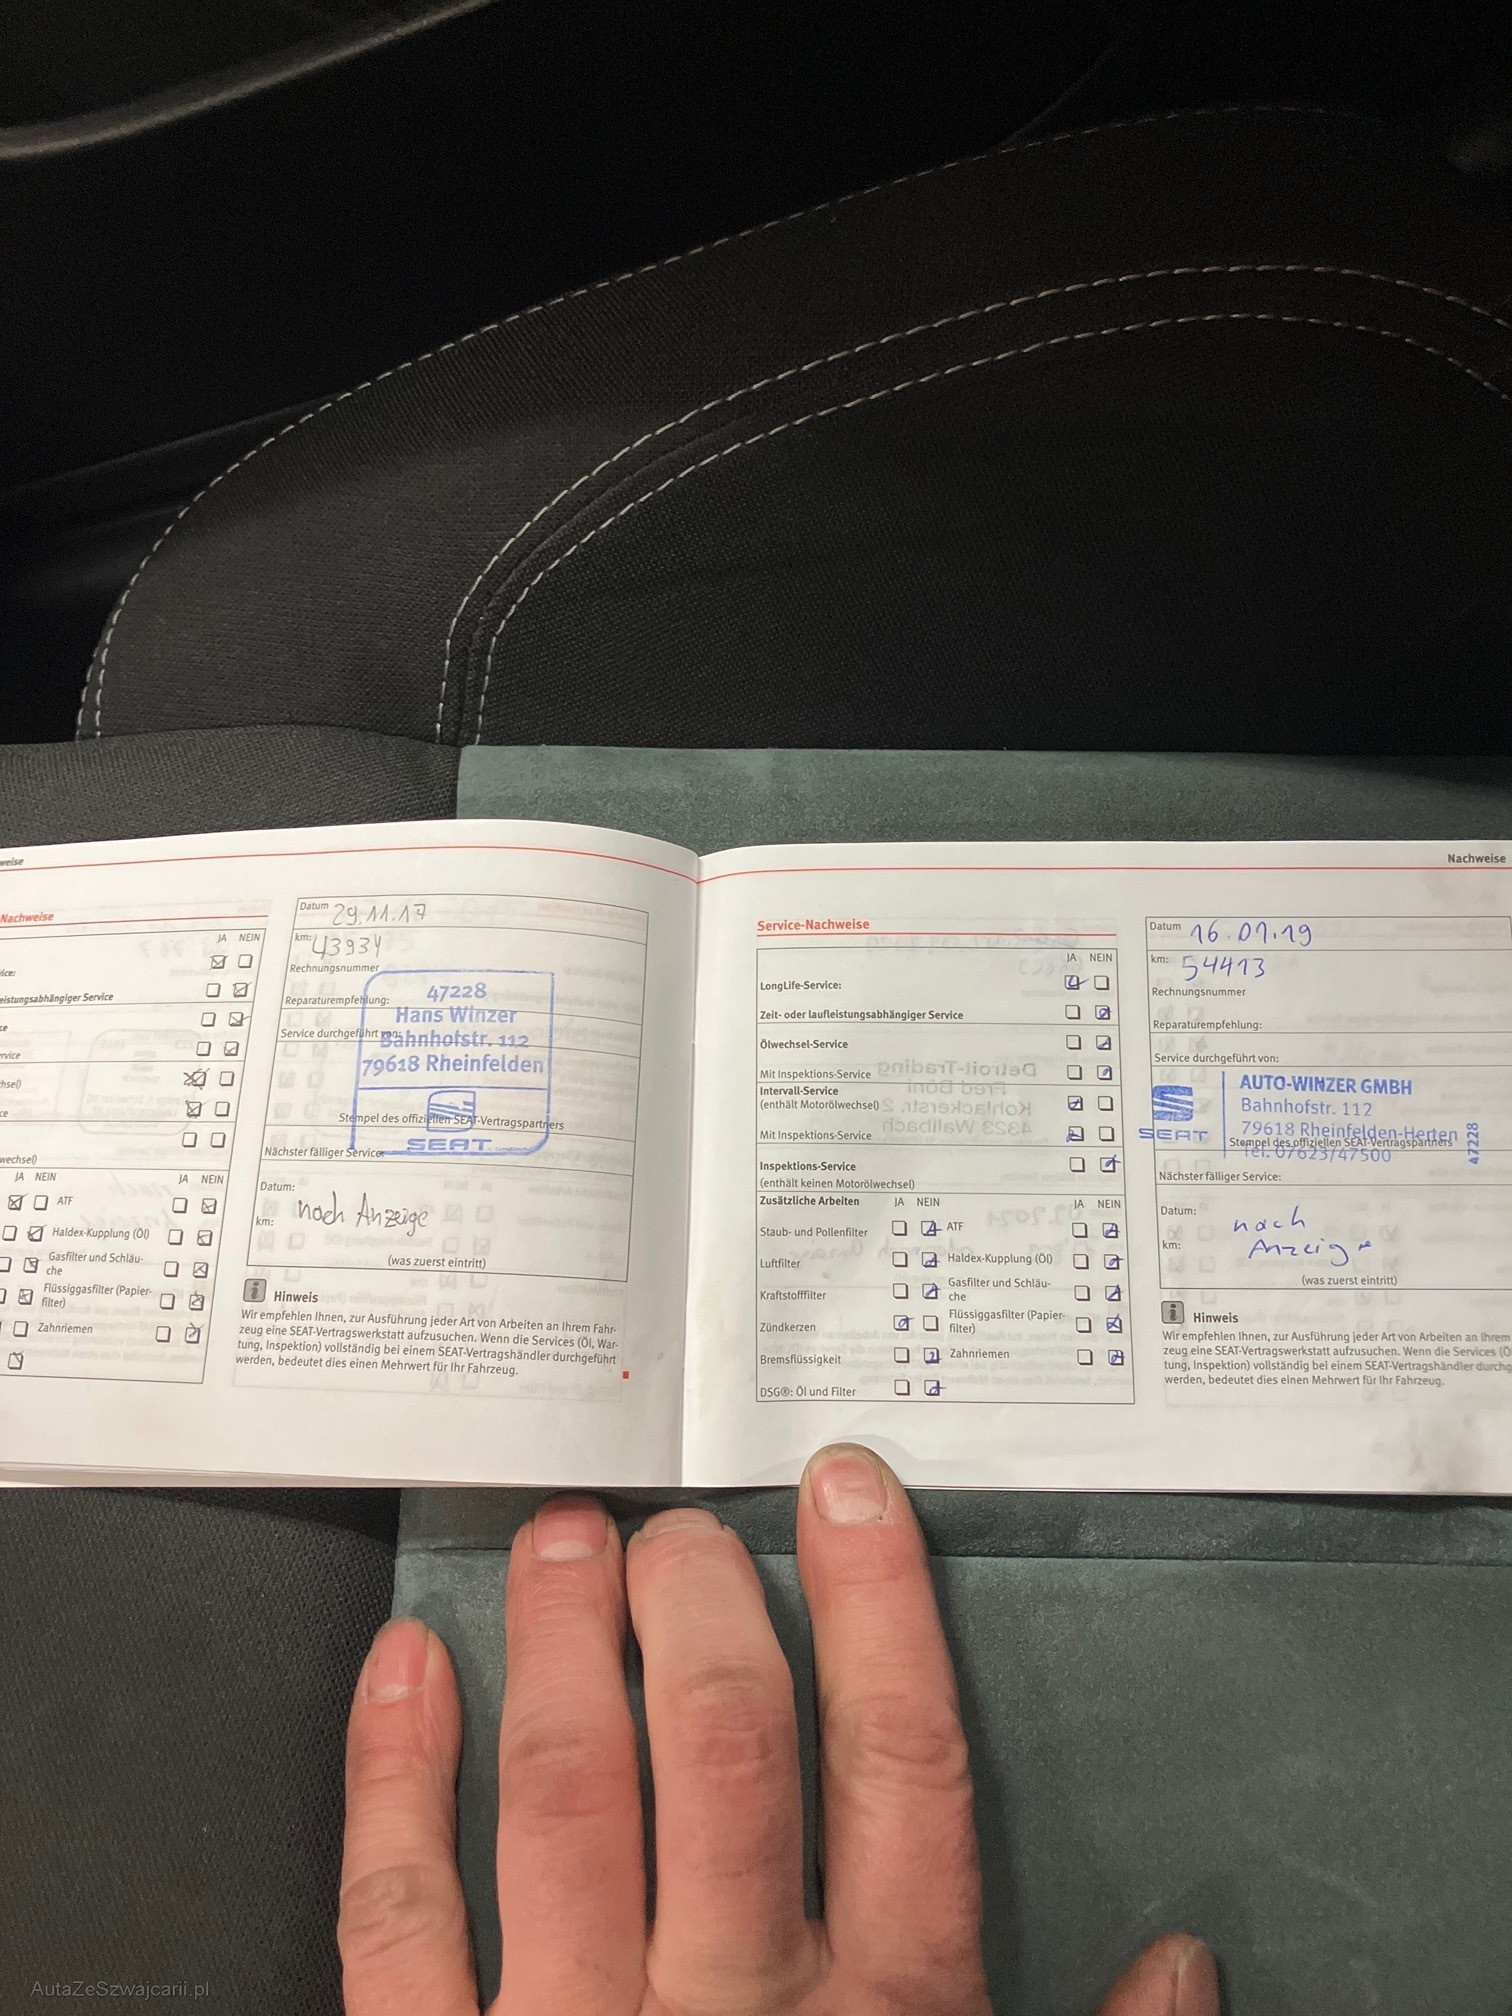 weise
Nachweise
Nachweise
JA NEIN
ice:
eistungsabhängiger Service
ce
ervice
hsel)
ce
wechsel)
JA NEIN
JA NEIN
ATF
Haldex-Kupplung (Öl)
Gasfilter und Schläu-
che
Flüssiggasfilter (Papier-
filter)
Zahnriemen
Datum 29.11.17
km: 43934
Rechnungsnummer
Reparaturempfehlung:
Service durchgeführt von:
47228
Hans Winzer
Bahnhofstr. 112
79618 Rheinfelden
Stempel des offiziellen SEAT-Vertragspartners
SEAT
Nächster fälliger Service:
Datum:
nach Anzeige
km:
(was zuerst eintritt)
Hinweis
Wir empfehlen Ihnen, zur Ausführung jeder Art von Arbeiten an Ihrem Fahr-
zeug eine SEAT-Vertragswerkstatt aufzusuchen. Wenn die Services (Öl, War-
tung, Inspektion) vollständig bei einem SEAT-Vertragshändler durchgeführt
werden, bedeutet dies einen Mehrwert für Ihr Fahrzeug.
Service-Nachweise
JA NEIN
LongLife-Service:
Zeit- oder laufleistungsabhängiger Service
Ölwechsel-Service
Mit Inspektions-Service
Intervall-Service
(enthält Motorölwechsel)
Mit Inspektions-Service
Inspektions-Service
(enthält keinen Motorölwechsel)
Zusätzliche Arbeiten JA NEIN JA NEIN
Staub- und Pollenfilter ATF
Luftfilter Haldex-Kupplung (Öl)
Kraftstofffilter Gasfilter und Schläu-
che
Zündkerzen Flüssiggasfilter (Papier-
filter)
Bremsflüssigkeit Zahnriemen
DSG®: Öl und Filter
Datum 16.01.19
km: 54413
Rechnungsnummer
Reparaturempfehlung:
Service durchgeführt von:
AUTO-WINZER GMBH
Bahnhofstr. 112
79618 Rheinfelden-Herten
Tel. 07623/47500
SEAT
47228
Stempel des offiziellen SEAT-Vertragspartners
Nächster fälliger Service:
Datum:
nach
km:
Anzeige
(was zuerst eintritt)
Hinweis
Wir empfehlen Ihnen, zur Ausführung jeder Art von Arbeiten an Ihrem
zeug eine SEAT-Vertragswerkstatt aufzusuchen. Wenn die Services (Ö
tung, Inspektion) vollständig bei einem SEAT-Vertragshändler durchg
werden, bedeutet dies einen Mehrwert für Ihr Fahrzeug.
AutaZeSzwajcarii.pl